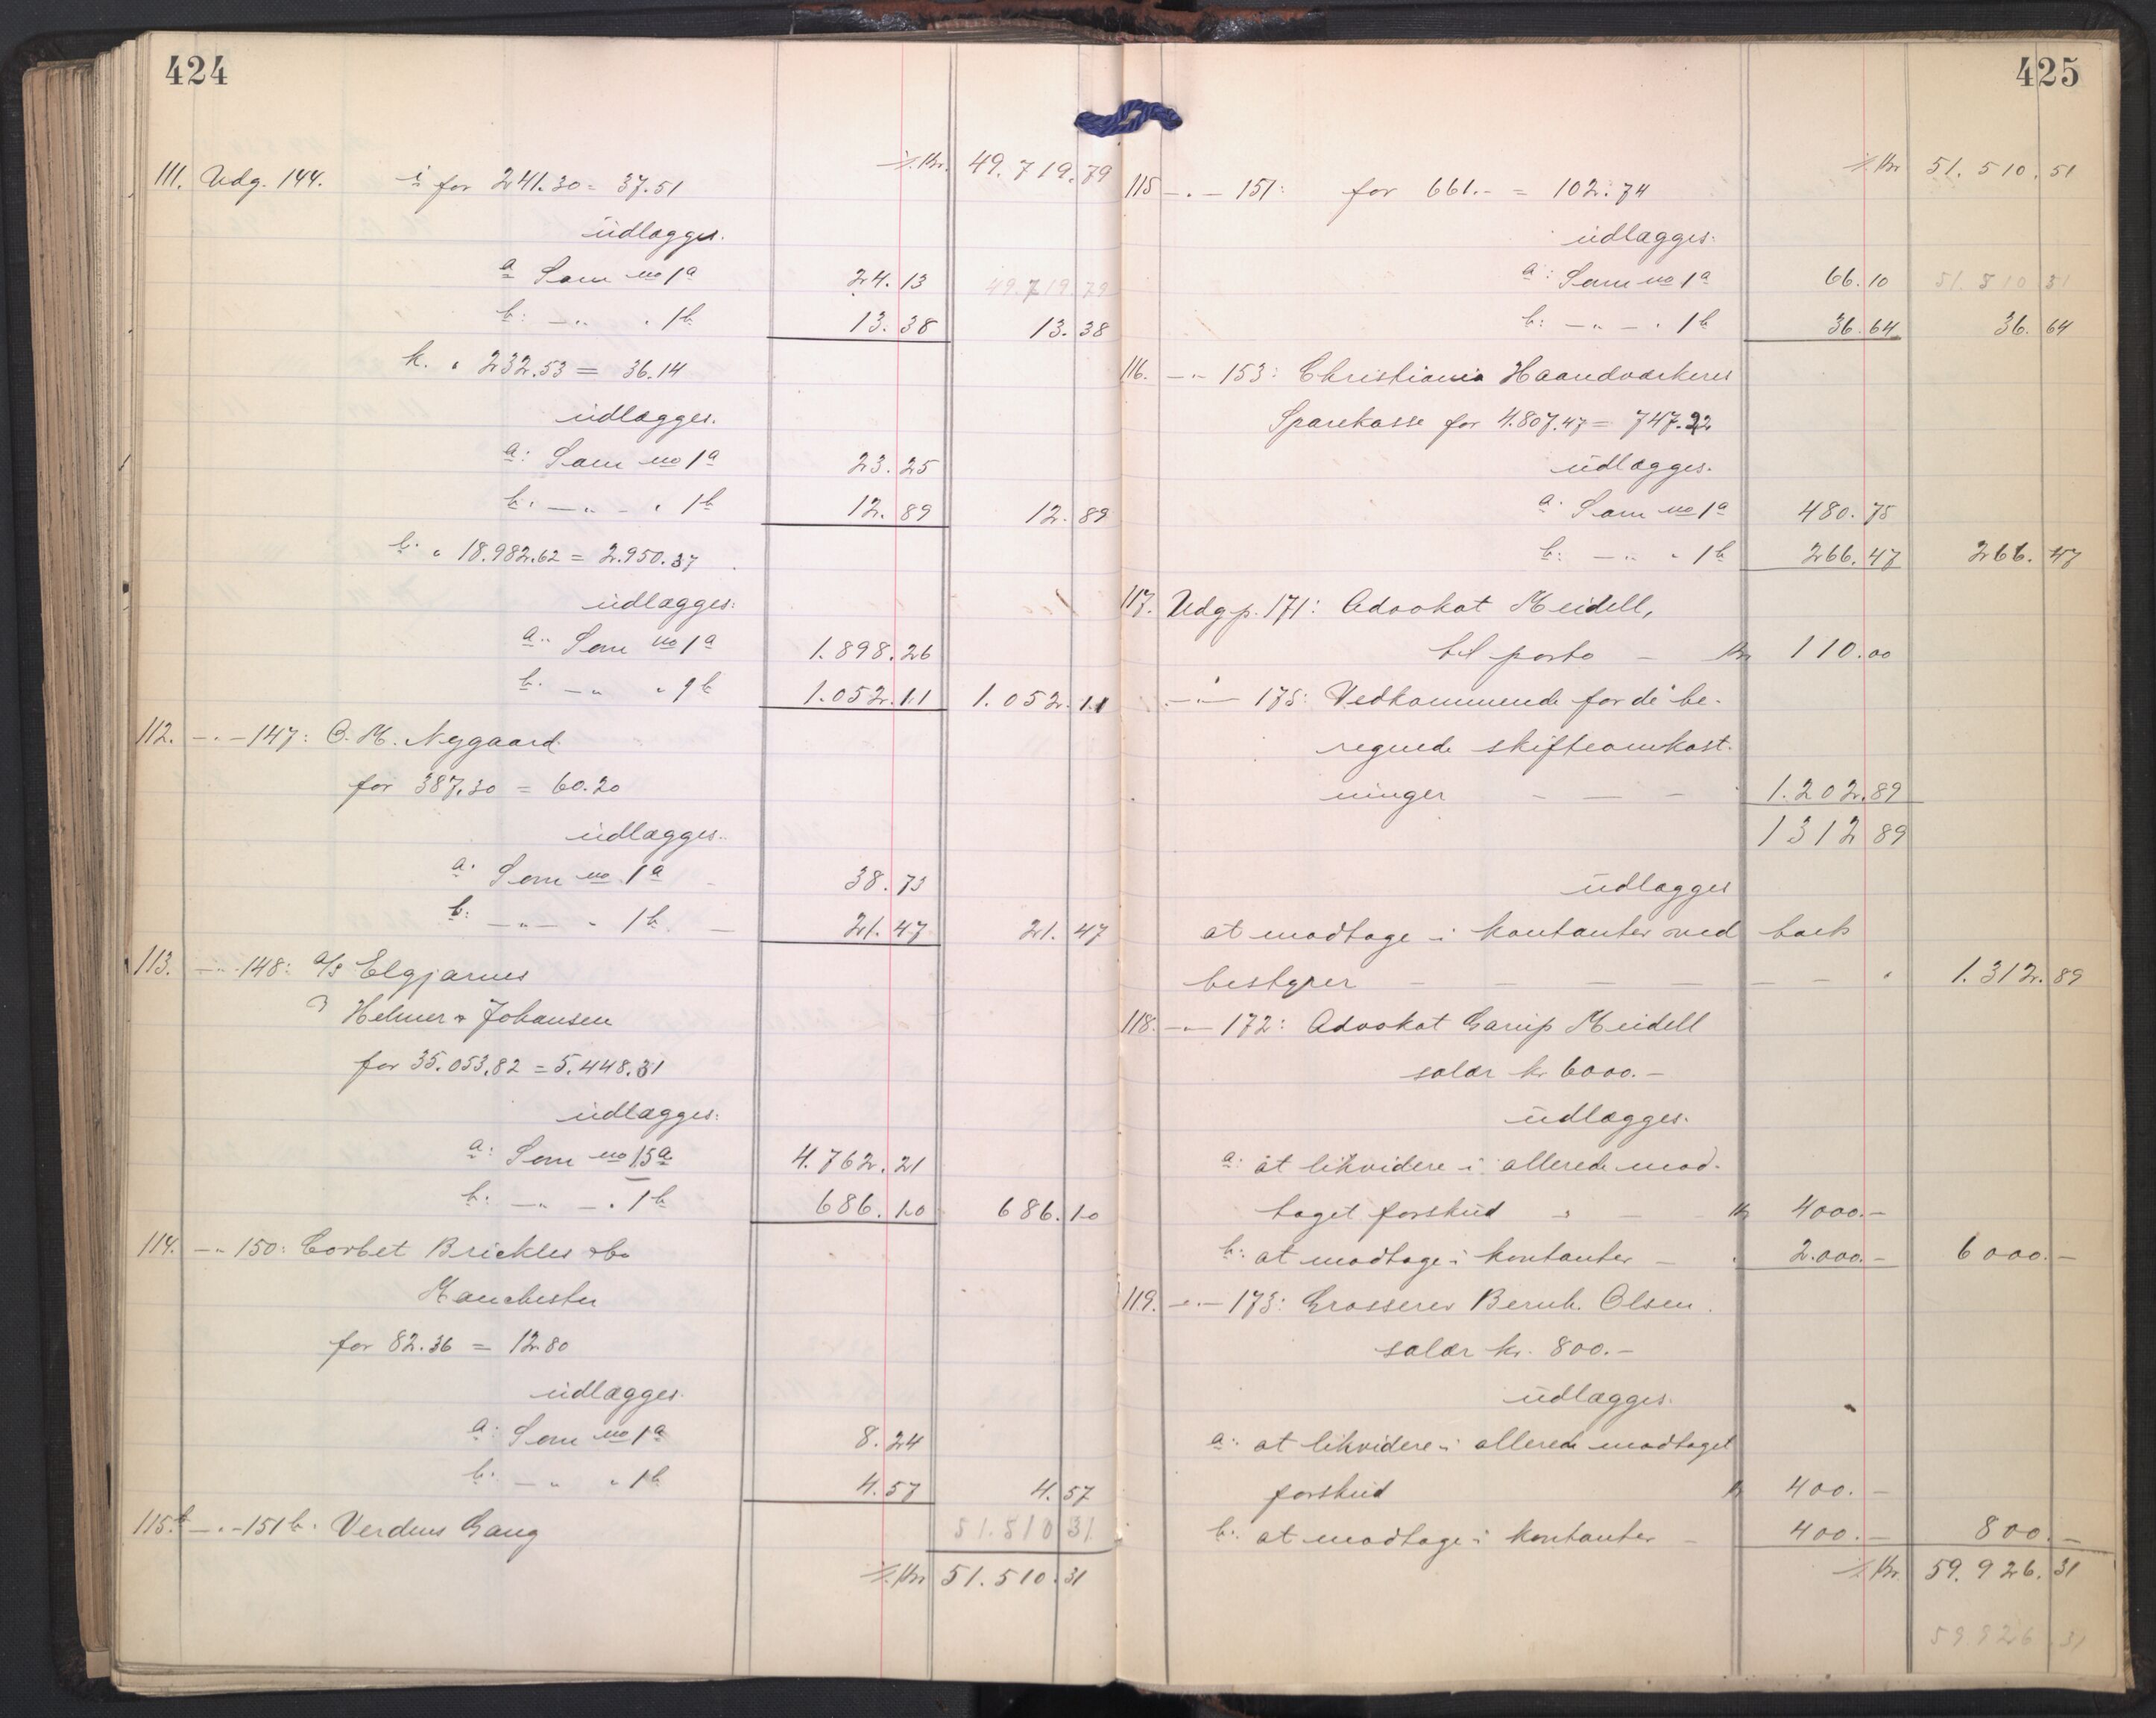 424
÷ Kr. 49.719.79
111. Udg. 144. i for 241.30 = 37.51
udlægges.
a Som no 1a 24.13 49.719.79
b: — " " 1b 13.38 13.38
k. " 232.53 = 36.14
udlægges.
a: Som no 1a 23.25
b: — " — " 1b 12.89 12.89
l. " 18.982.62 = 2.950.37
udlægges:
a: Som no 1a 1.898.26
b: — " " 1b 1.052.11 1.052.11
112. — " — 147: O. M. Nygaard
for 387.30 = 60.20
udlægges:
a: Som no 1a 38.73
b: — " — " 1b — 21.47 21.47
113. — " — 148: A/S Elgjarnes
Helmer & Johansen
for 35.053.82 = 5.448.31
udlægges:
a: Som no 15a 4.762.21
b: — " — " 1b 686.10 686.10
114. — " 150: Corbet Brickles & Co
Manchester
for 82.36 = 12.80
udlægges.
a: Som no 1a 8.24
b: — " " 1b 4.57 4.57
115b — " — 151b: Verdens Gang 51.510 31
÷ Kr 51.510.31
425
÷ Kr 51.510.51
115 — " — 151: for 661.- = 102.74
udlægges:
a: Som no 1a 66.10 51.510 31
b: — " — " 1b 36.64 36.64
116. — " 153: Christiania Haandværkeres
Sparekasse for 4.807.47 = 747.22
udlægges.
a: Som no 1a 480.75
b: — " " 1b 266.47 266.47
117. Udg p. 171: Advokat Meidell,
til porto — Kr 110.00
— " — 175: Vedkommende for de be-
regnede skifteomkost-
ninger — — — 1.202.89
1312 89
udlægges
at modtage i kontanter ved boets
bestyrer — — — — — — " 1.312.89
118. — " — 172: Advokat Garup Meidell
salær kr 6000.-
udlægges.
a: at likvidere i allerede mod-
taget forskud " — Kr 4000.-
b: at modtage i kontanter — " 2.000.- 6000.-
119. — " — 173: Grosserer Bernh. Olsen.
salær kr. 800.-
udlægges.
a: at likvidere i allerede modtaget
forskud Kr 400.-
b: at modtage i kontanter — 400.- 800.-
÷ Kr. 59.926.31
59.926.31